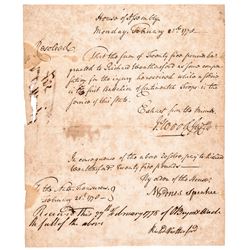 House of Assembly
Monday, February 21st 1778
Resolved
That the sum of Twenty five pounds be
granted to Richard Weatherford as some compen
sation for the injury he received while a soldier
in the first Battalion of Continental Troops in the
service of this State.
Extract from the minutes
In consequence of the above Order, pay to Richard
Weatherford Twenty five pounds
By order of the House
Speaker
To the Treasurer
February 21st 1778
Received this 27th February 1778 of
in full of the above
Richd Weatherford